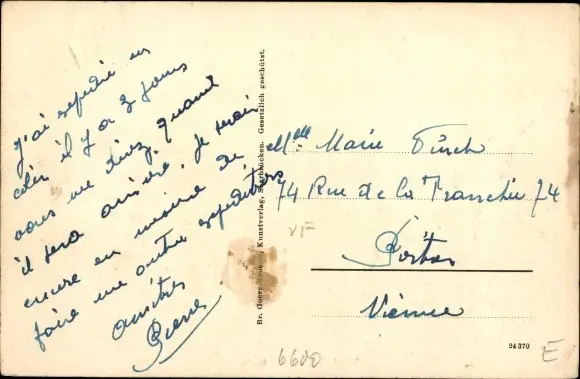 J'ai expédié un
colis il y a 3 jours
vous me direz quand
il sera arrivé. Je serai
encore en mesure de
faire une autre expédition
amitiés
Pierre
Br. Goerg Kunstverlag, Saarbrücken. Gesetzlich geschützt.
Mlle Marie
74 Rue de la Tranchée 74
VF
Poitiers
Vienne
24370
6600
E